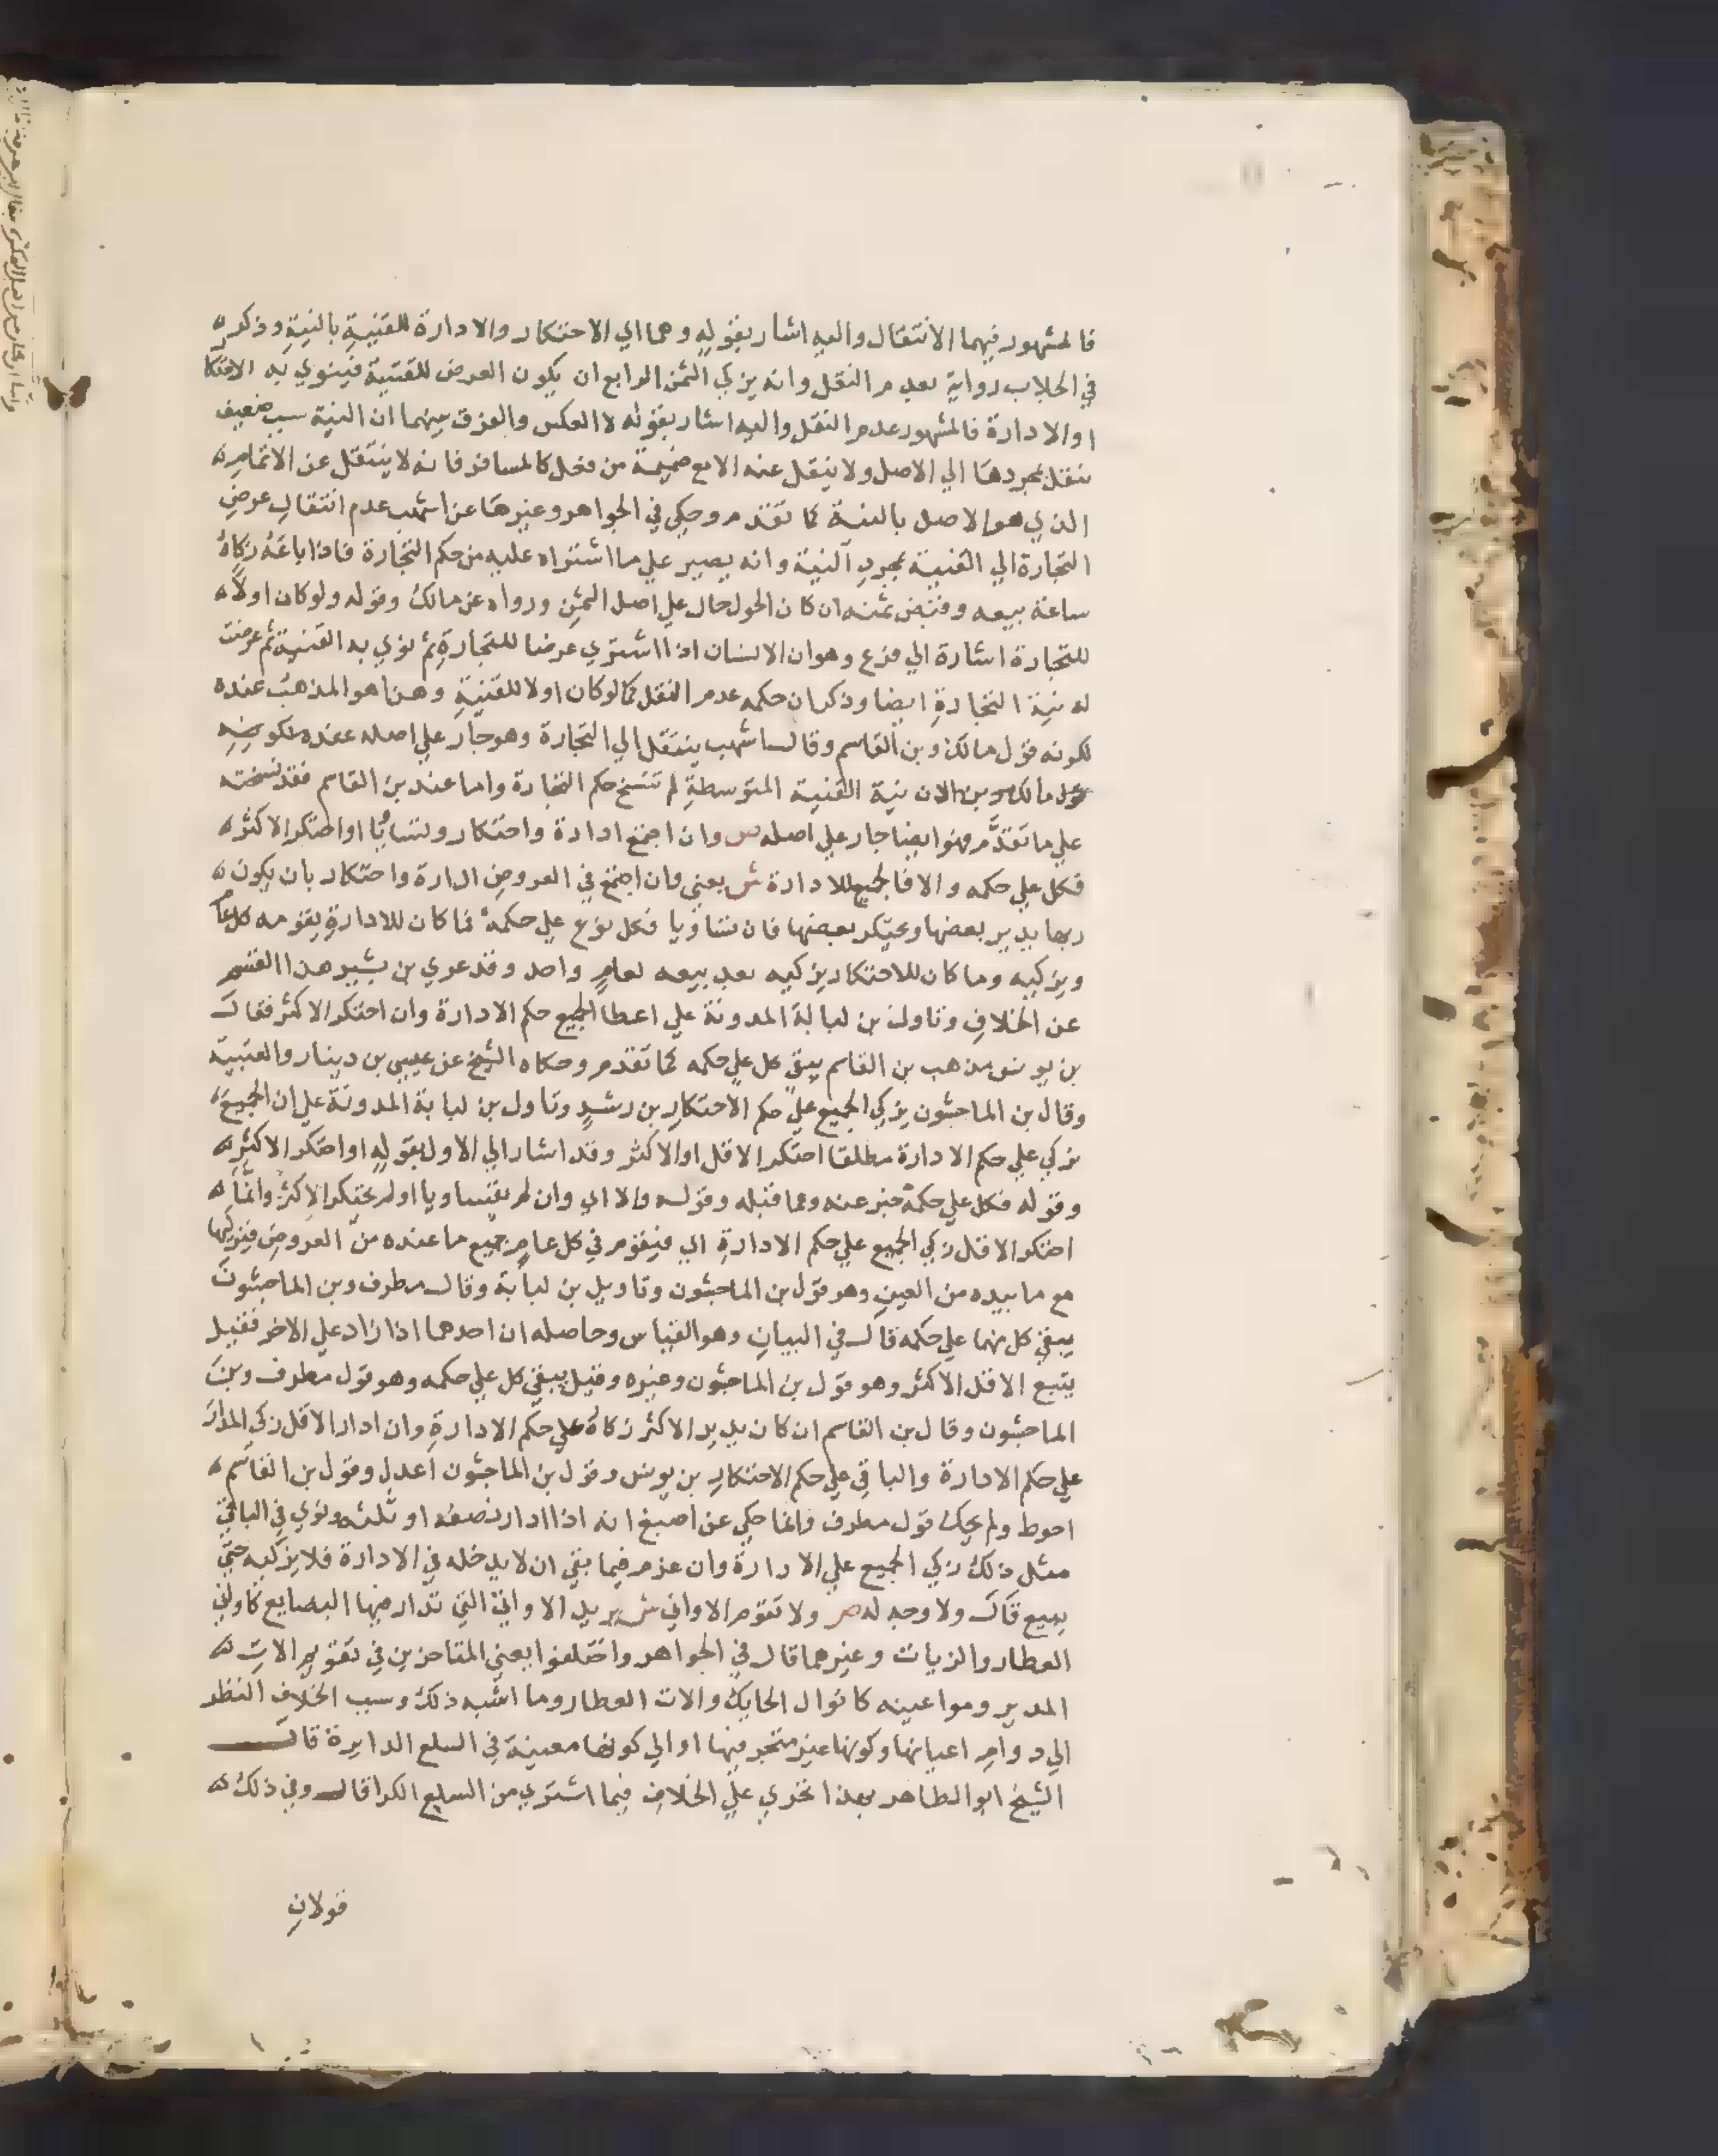 فالمشهور فيهما الانتقال واليه اشار بقوله وهما اي الاحتكار والادارة للقنية بالنية وذكر
في الجلاب رواية بعدم النقل وانه يزكي الثمن الرابع ان يكون العرض للقنية فينوي به الاحتكا
او الادارة فالمشهور عدم النقل واليه اشار بقوله لا العكس والفرق بينهما ان النية سبب ضعيف
تنقل بمجردها الي الاصل ولا ينقل عنه الا مع ضميمة من فعل كالمسافر فانه لا ينتقل عن الاتمام
الذي هو الاصل بالنية كما تقدم وحكي في الجواهر وغيرها عن اشهب عدم انتقال عرض
التجارة الي القنية بمجرد النية وانه يصير علي ما اشتراه عليه من حكم التجارة فاذا باعه زكاه
ساعة بيعه وقبض ثمنه ان كان الحول حال علي اصل الثمن ورواه عن مالك وقوله ولو كان اولا
للتجارة اشارة الي فرع وهو ان الانسان اذا اشتري عرضا للتجارة ثم نوي به القنية ثم عرضت
له نية التجارة ايضا وذكر ان حكمه عدم النقل كما لو كان اولا للقنية وهذا هو المذهب عنده
لكونه قول مالك وبن القاسم وقال اشهب ينتقل الي التجارة وهو جار علي اصله عنده
لان نية القنية المتوسطة لم تنسخ حكم التجارة واما عند بن القاسم فقد نسخته
علي ما تقدم فهو ايضا جار علي اصله ص وان اجتمع ادارة واحتكار وتساويا او احتكر الاكثر
فكل علي حكمه والا فالجميع للادارة ش يعني وان اجتمع في العروض ادارة واحتكار بان يكون
ربها يدير بعضها ويحتكر بعضها فان تساويا فكل نوع علي حكمه فما كان للادارة يقومه كل عام
ويزكيه وما كان للاحتكار يزكيه بعد بيعه لعام واحد وقد عري بن بشير هذا القسم
عن الخلاف وتاول بن لبابة المدونة علي اعطا الجميع حكم الادارة وان احتكر الاكثر فقال
بن يونس مذهب بن القاسم يبقي كل علي حكمه كما تقدم وحكاه الشيخ عن عيسي بن دينار والعتبية
وقال بن الماجشون يزكي الجميع علي حكم الاحتكار بن رشد وتاول بن لبابة المدونة علي ان الجميع
يزكي علي حكم الادارة مطلقا احتكر الاقل او الاكثر وقد اشار الي الاول بقوله او احتكر الاكثر
وقوله فكل علي حكمه خبر عنه وعما قبله وقوله والا اي وان لم يتساويا او لم يحتكر الاكثر وانما
احتكر الاقل زكي الجميع علي حكم الادارة اي فيقوم في كل عام جميع ما عنده من العروض فيزكيها
مع ما بيده من العين وهو قول بن الماجشون وتاويل بن لبابة وقال مطرف وبن الماجشون
يبقي كل منهما علي حكمه قال في البيان وهو القياس وحاصله ان احدهما اذا زاد علي الاخر فقيل
يتبع الاقل الاكثر وهو قول بن الماجشون وغيره وقيل يبقي كل علي حكمه وهو قول مطرف وبن
الماجشون وقال بن القاسم ان كان يدير الاكثر زكاة علي حكم الادارة وان ادار الاقل زكي المدار
علي حكم الادارة والباقي علي حكم الاحتكار بن يونس وقول بن الماجشون اعدل وقول بن القاسم
احوط ولم يحك قول مطرف وانما حكي عن اصبغ انه اذا ادار نصفه او ثلثه ونوي في الباقي
مثل ذلك زكي الجميع علي الادارة وان عزم فيما بقي ان لا يدخله في الادارة فلا يزكيه حتي
يبيع قال ولا وجه له ص ولا تقوم الاواني ش يريد الاواني التي تدار فيها البضايع كاواني
العطار والزيات وغيرهما قال في الجواهر واختلفوا يعني المتاخرين في تقويم الات
المدير ومواعينه كانوال الحايك والات العطار وما اشبه ذلك وسبب الخلاف النظر
الي دوام اعيانها وكونها غير متجر فيها او الي كونها معينة في السلع الدايرة قال
الشيخ ابو الطاهر وهذا يجري علي الخلاف فيما اشتري من السلع للكرا قال وفي ذلك
قولان